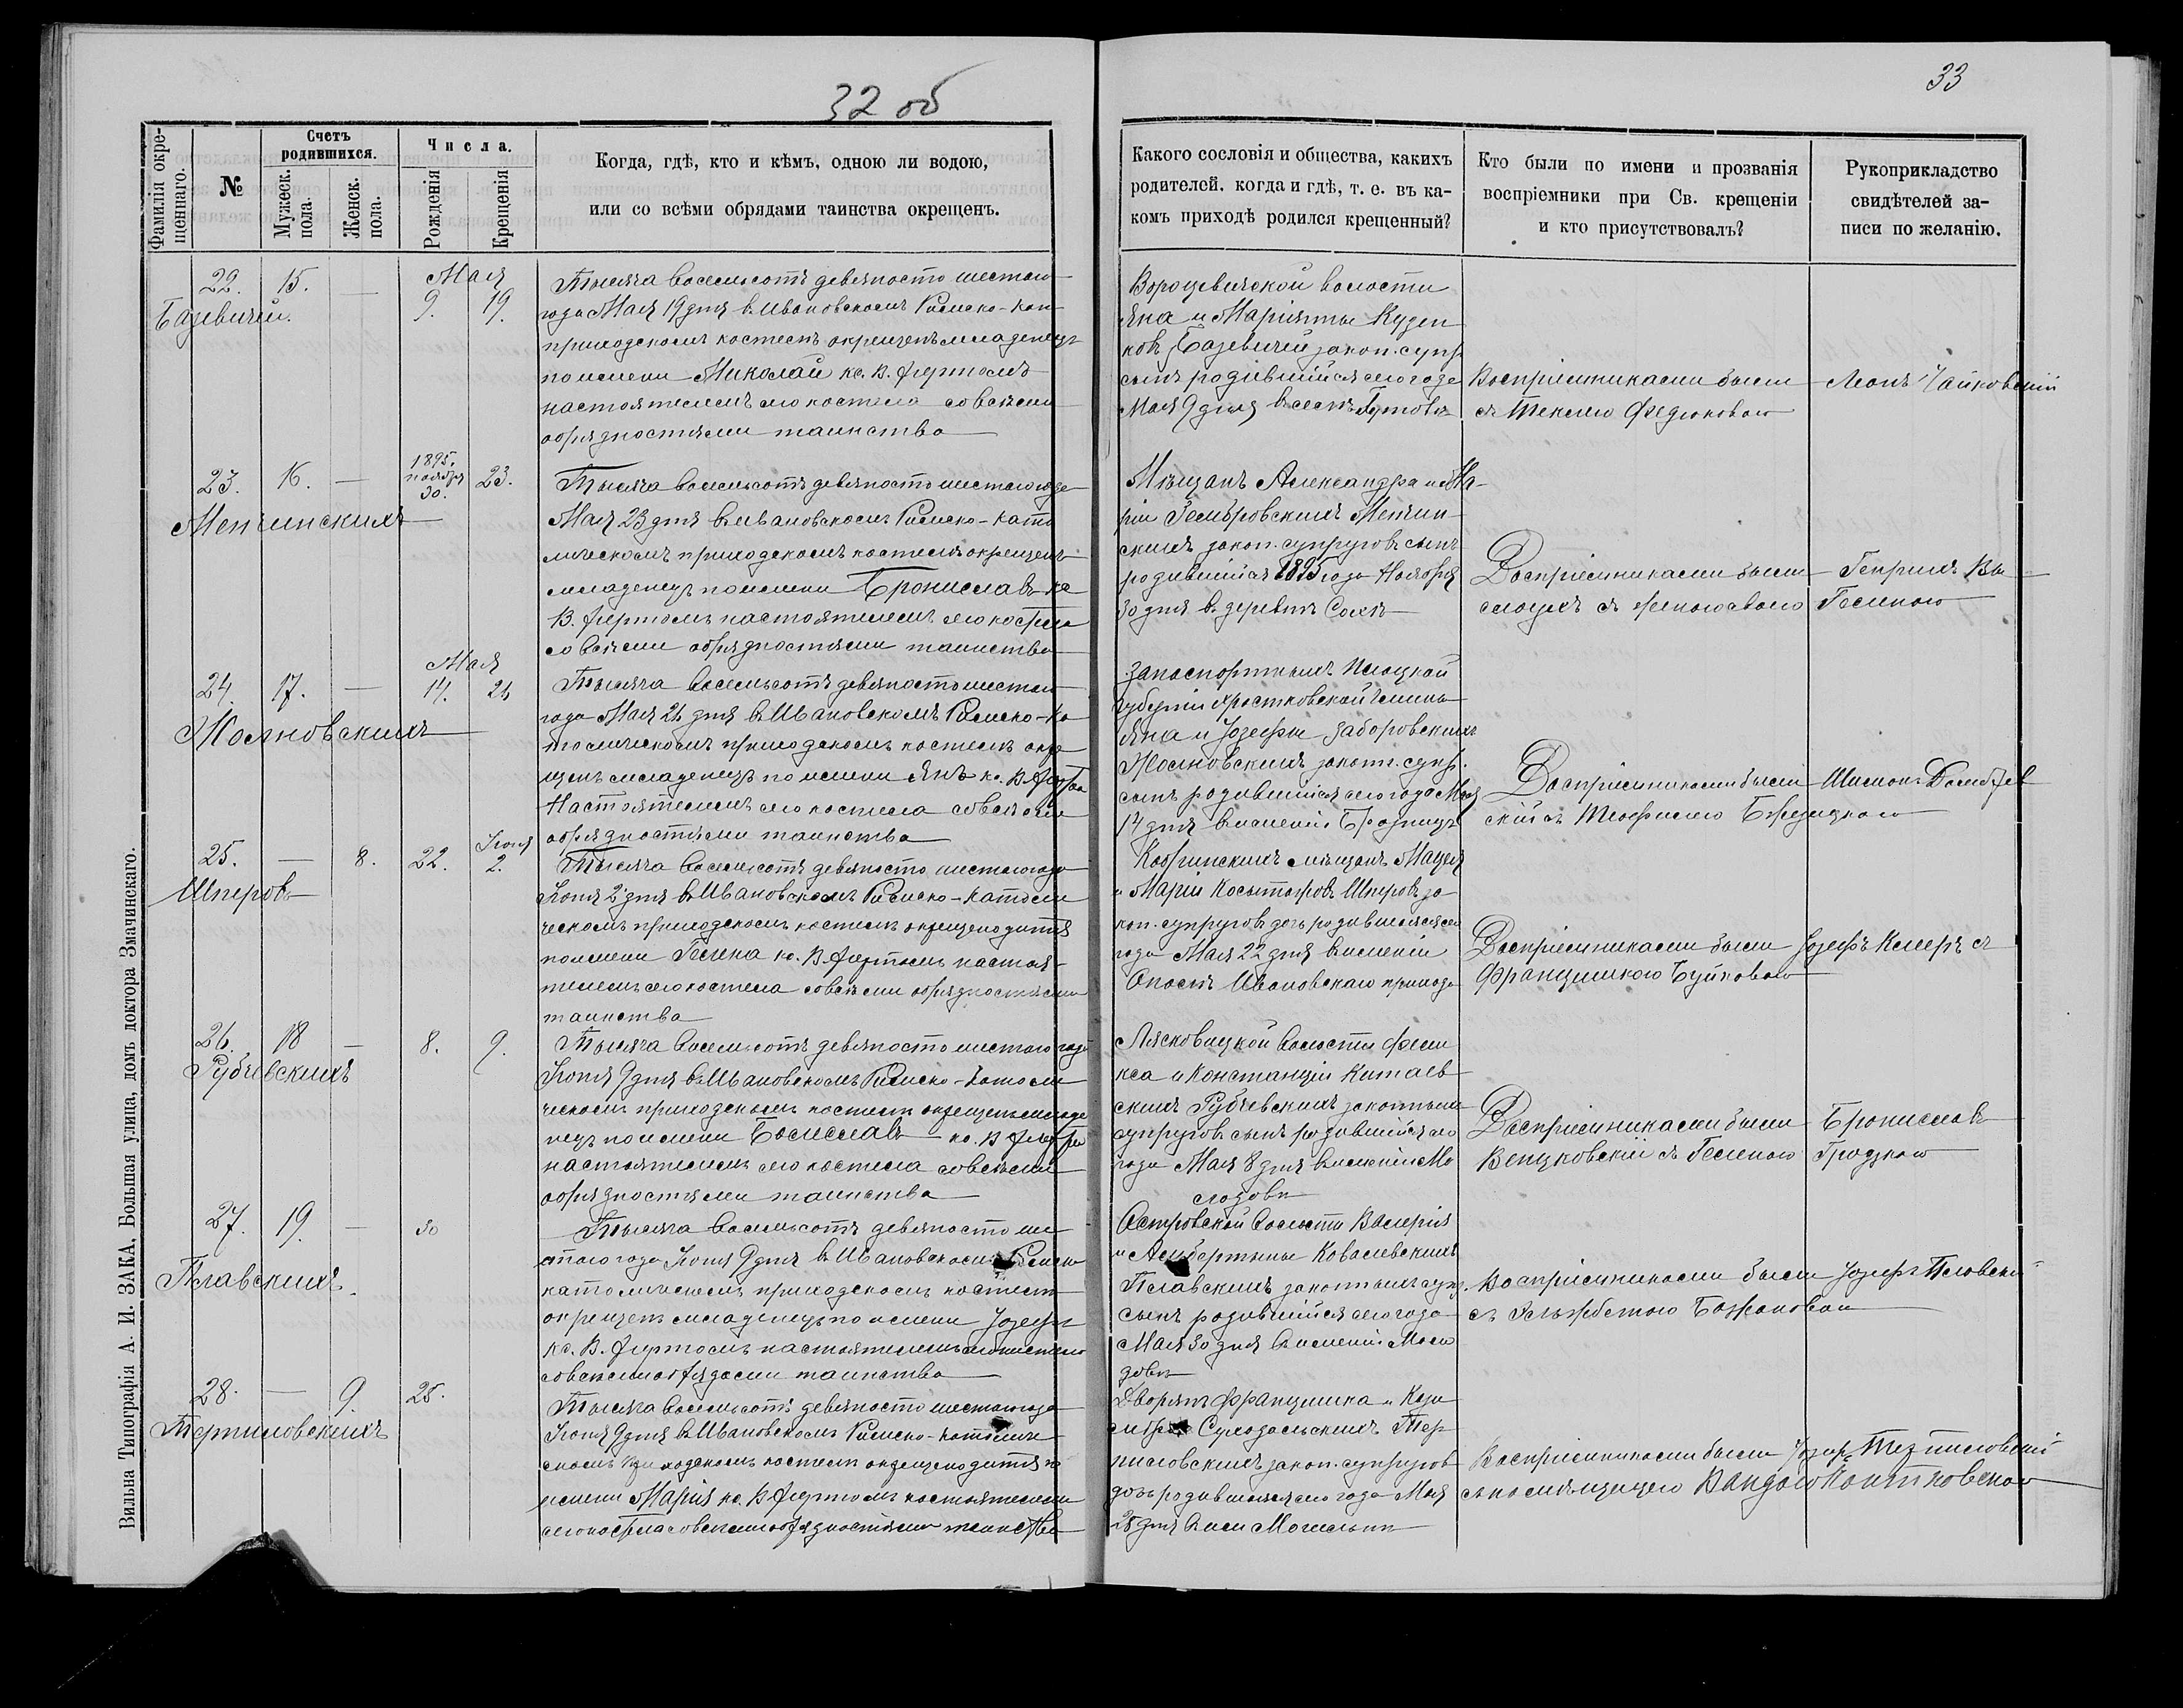 32 об
33
Фамилія окре-
щеннаго.
№
Счетъ
родившихся.
Мужеск.
пола.
Женск.
пола.
Числа.
Рожденія
Крещенія
Когда, гдѣ, кто и кѣмъ, одною ли водою,
или со всѣми обрядами таинства окрещенъ.
Какого сословія и общества, какихъ
родителей. когда и гдѣ, т. е. въ ка-
комъ приходѣ родился крещенный?
Кто были по имени и прозванія
воспріемники при Св. крещеніи
и кто присутствовалъ?
Рукоприкладство
свидѣтелей за-
писи по желанію.
22. 15. —
Мая
9. 19.
Базевичей.
Тысяча восемьсотъ девяносто шестого
года Мая 19 дня въ Ивановскомъ Римско-кат
приходскомъ костелѣ окрещенъ младенецъ
по имени Миколай кс. В. Фертомъ
настоятелемъ сего костела со всѣми
обрядностями таинства
Вороцевичской волости
Яна и Маріянны
Базевичей закон. супр
сынъ родившійся сего года
Мая 9 дня въ селѣ
Воспріемниками были Леонъ Чайковскій
съ Теклею Федюковою
23. 16. —
1895.
ноября
30. 23.
Менчинскихъ
Тысяча восемьсотъ девяносто шестого года
Мая 23 дня въ Ивановскомъ Римско-като
лическомъ приходскомъ костелѣ окрещенъ
младенецъ по имени Брониславъ кс
В. Фертомъ настоятелемъ сего костела
со всѣми обрядностями таинства
Мѣщанъ Александра и Ма-
ріи Менчин
скихъ закон. супруговъ сынъ
родившійся 1895 года Ноября
30 дня въ деревнѣ
Воспріемниками были Генрихъ Вы
съ женою своею Геленою
Мая
24. 17. — 14. 24
Жолновскихъ
Тысяча восемьсотъ девяносто шестого
года Мая 24 дня въ Ивановскомъ Римско-ка
толическомъ приходскомъ костелѣ окре
щенъ младенецъ по имени Янъ кс. В. Фертом
Настоятелемъ сего костела со всѣми
обрядностями таинства
Запаспортныхъ Плоцкой
губерніи гмины
Яна и Юзефы Заборовскихъ
Жолновскихъ законн. супр.
сынъ родившійся сего года Мая
14 дня въ имѣніи
Воспріемниками были Шимонъ
скій съ Теофилею
25. — 8. 22.
Іюня
2.
Шперовъ
Тысяча восемьсотъ девяносто шестого года
Іюня 2 дня въ Ивановскомъ Римско-католи
ческомъ приходскомъ костелѣ окрещено дитя
по имени Гелена кс. В. Фертомъ настоя-
телемъ сего костела со всѣми обрядностями
таинства
Кобринскихъ мѣщанъ Мацея
и Маріи Шперовъ за
кон. супруговъ дочь родившаяся сего
года Мая 22 дня въ имѣніи
Ополѣ Ивановскаго прихода
Воспріемниками были Юзефъ Клееръ съ
Францишкою Буйковою
26. 18 — 8. 9.
Рубчевскихъ
Тысяча восемьсотъ девяносто шестого года
Іюня 9 дня въ Ивановскомъ Римско-католи
ческомъ приходскомъ костелѣ окрещенъ младе
нецъ по имени Болеславъ кс. В. Фертом
настоятелемъ сего костела со всѣми
обрядностями таинства
Лясковицкой волости Фели
кса и Констанціи Китаев
скихъ Рубчевскихъ законныхъ
супруговъ сынъ родившійся сего
года Мая 8 дня въ имѣніи Мо
лодовѣ
Воспріемниками были Брониславъ
Венцковскій съ Геленою Гродзкою
27. 19. — 30
Плавскихъ.
Тысяча восемьсотъ девяносто ше
стого года Іюня 9 дня въ Ивановскомъ Римско
католическомъ приходскомъ костелѣ
окрещенъ младенецъ по имени Юзефъ
кс. В. Фертомъ настоятелемъ сего костела
со всѣми обрядами таинства
Островской волости Валерія
и Альбертины Ковалевскихъ
Плавскихъ законныхъ супр.
сынъ родившійся сего года
Мая 30 дня въ имѣніи Моло
довѣ
Воспріемниками были Юзефъ Плавскій
съ Эльжбетою Божановою
28. — 9. 28.
Терпиловскихъ
Тысяча восемьсотъ девяносто шестого года
Іюня 9 дня въ Ивановскомъ Римско-католиче
скомъ приходскомъ костелѣ окрещено дитя по
имени Марія кс. В. Фертомъ настоятелемъ
сего костела со всѣми обрядностями таинства
Дворянъ Францишка и Кази
миры Суходольскихъ Тер
пиловскихъ закон. супруговъ
дочь родившаяся сего года Мая
28 дня въ им Могильнѣ
Воспріемниками были Юзефъ Терпиловскій
съ помѣщицею Вандою
Вильна Типографія А. И. ЗАКА, Большая улица, домъ доктора Змачинскаго.